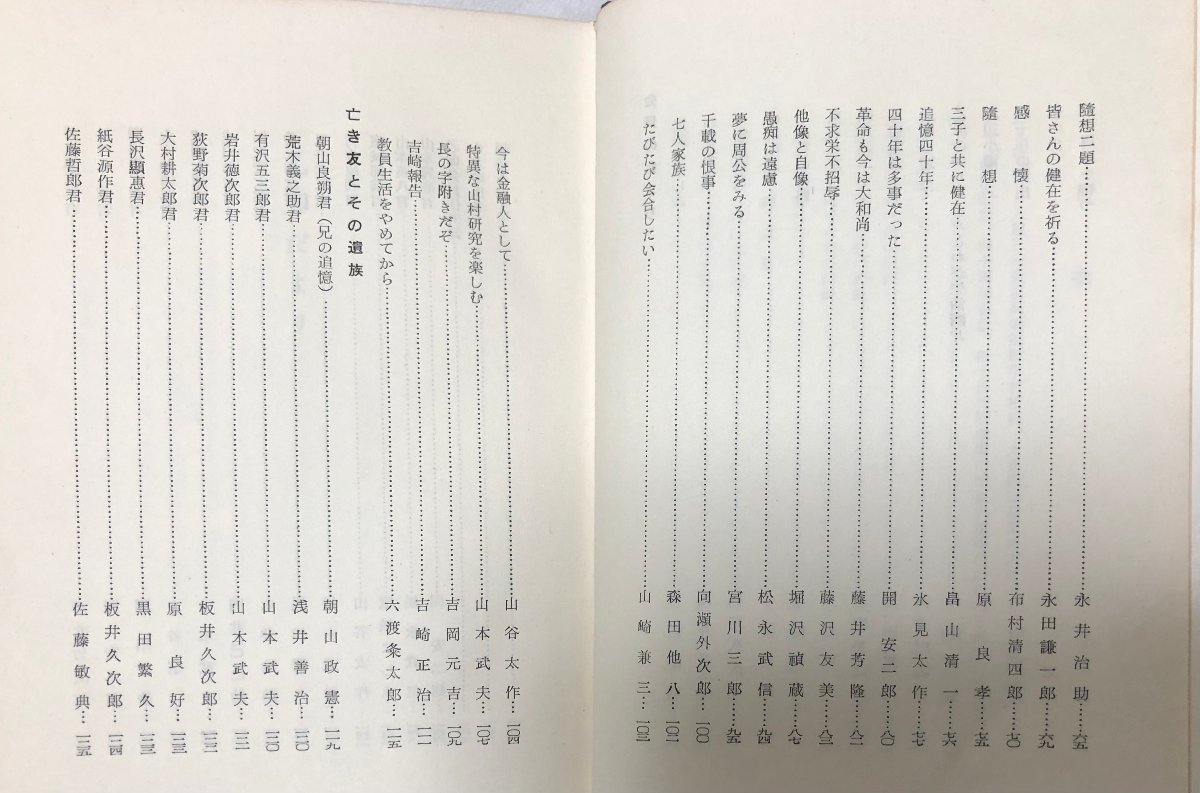 隨想二題……永井治助…六五
皆さんの健在を祈る……永田謙一郎…六九
感懐……布村清四郎…七〇
隨想……原良孝…七五
三子と共に健在……畠山清一…七六
追憶四十年……氷見太作…七七
四十年は多事だった……開安二郎…八〇
革命も今は大和尚……藤井芳隆…八二
不求栄不招辱……藤沢友美…八三
他像と自像……堀沢禎蔵…八七
愚痴は遠慮……松永武信…九四
夢に周公をみる……宮川三郎…九五
千載の恨事……向瀬外次郎…一〇〇
七人家族……森田他八…一〇二
たびたび会合したい……山崎兼三…一〇三
今は金融人として……山谷太作…一〇四
特異な山村研究を楽しむ……山本武夫…一〇七
長の字附きだぞ……吉岡元吉…一〇九
吉崎報告……吉崎正治…一一一
教員生活をやめてから……六渡条太郎…一一五
亡き友とその遺族
朝山良朔君（兄の追憶）……朝山政憲…一一九
荒木義之助君……浅井善治…一二〇
有沢五三郎君……山本武夫…一二〇
岩井徳次郎君……山本武夫…一二一
荻野菊次郎君……板井久次郎…一二二
大村耕太郎君……原良好…一二三
長沢顯恵君……黒田繁久…一二三
紙谷源作君……板井久次郎…一二四
佐藤哲郎君……佐藤敏典…一二五